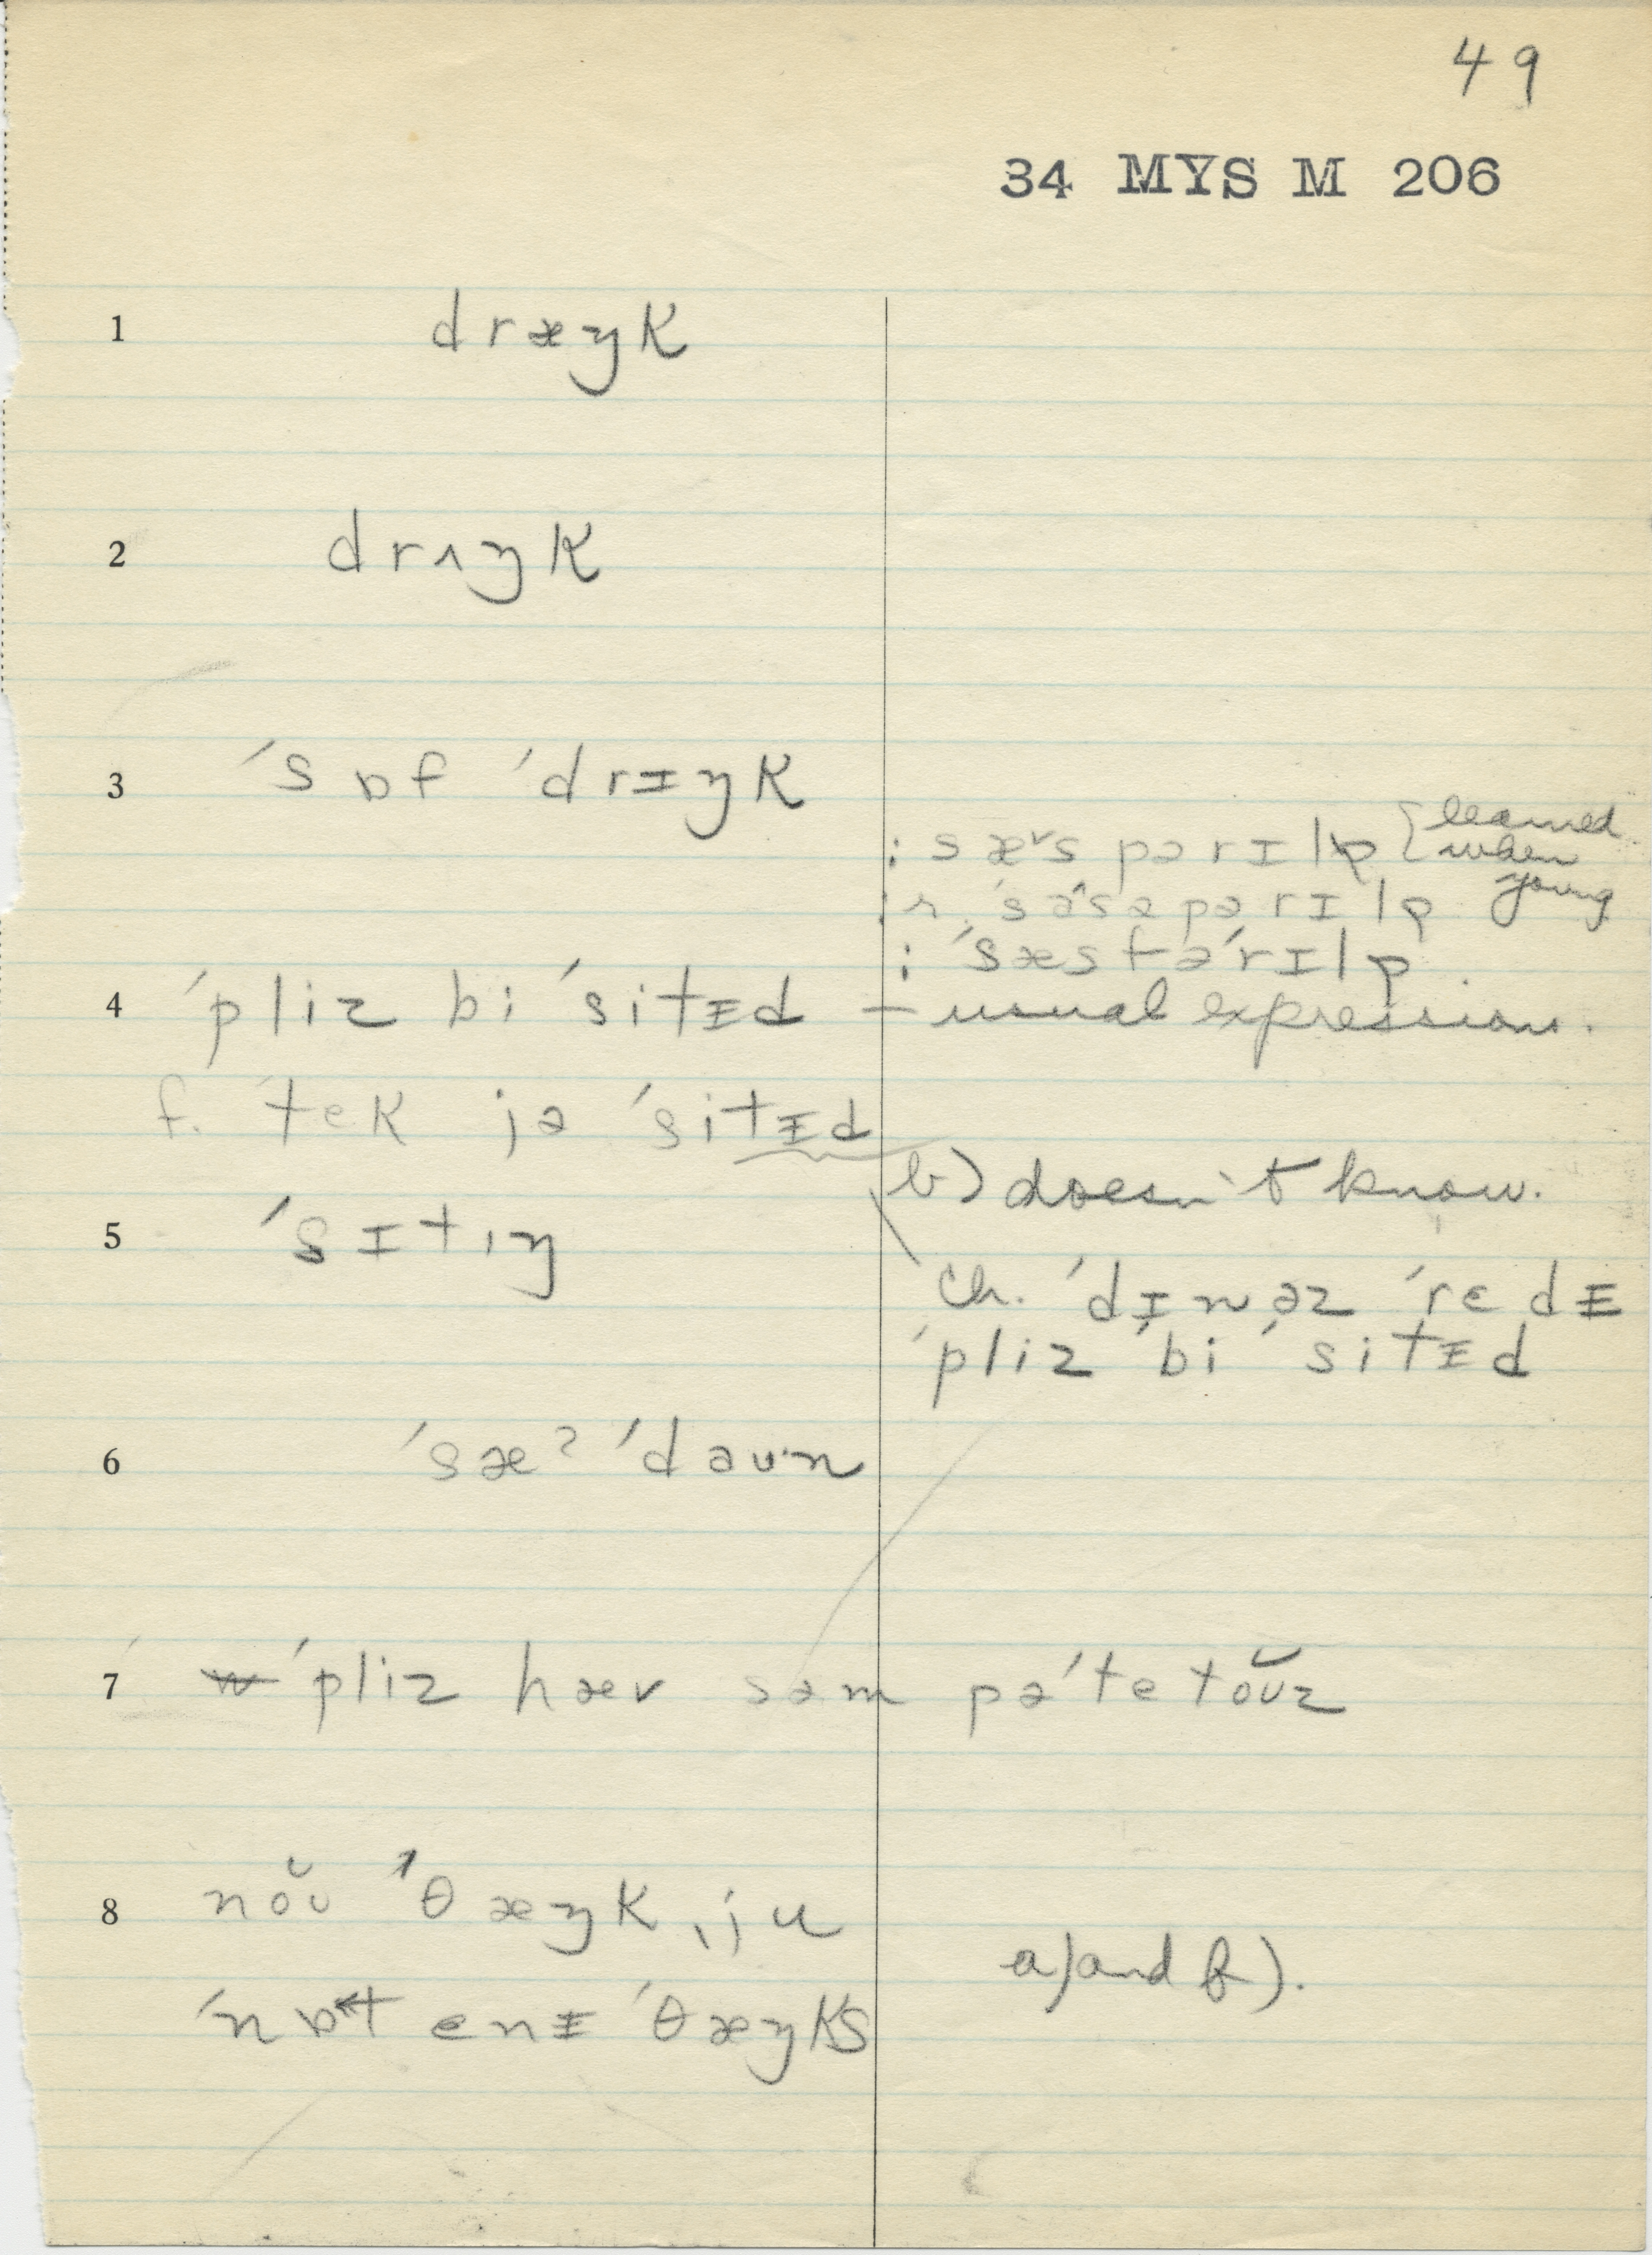 49
34 MYS M 206
1 dræŋk
2 drʌŋk
3 ˈsɒf ˈdrɪŋk
: sæᵛs pərɪlɒ { learned when young
:r. ˈsɑ^sə pərɪlɒ
: ˈsæsfəˈrɪlɒ
4 ˈpliz bi ˈsitᵻd — usual expression.
f. ˈtek jə ˈsitᵻd
b) doesn't know.
5 ˈsɪtɪŋ
ch. ˈdɪnəz ˈrɛdᵻ
ˈpliz ˈbi ˈsitᵻd
6 ˈsæʔ ˈdaʊn
7 ˈpliz hæv səm pəˈtetoʊ̆z
8 noʊ̆ ˈθæŋk ˌju
ˈnɒt enᵻ ˈθæŋks
a) and f).